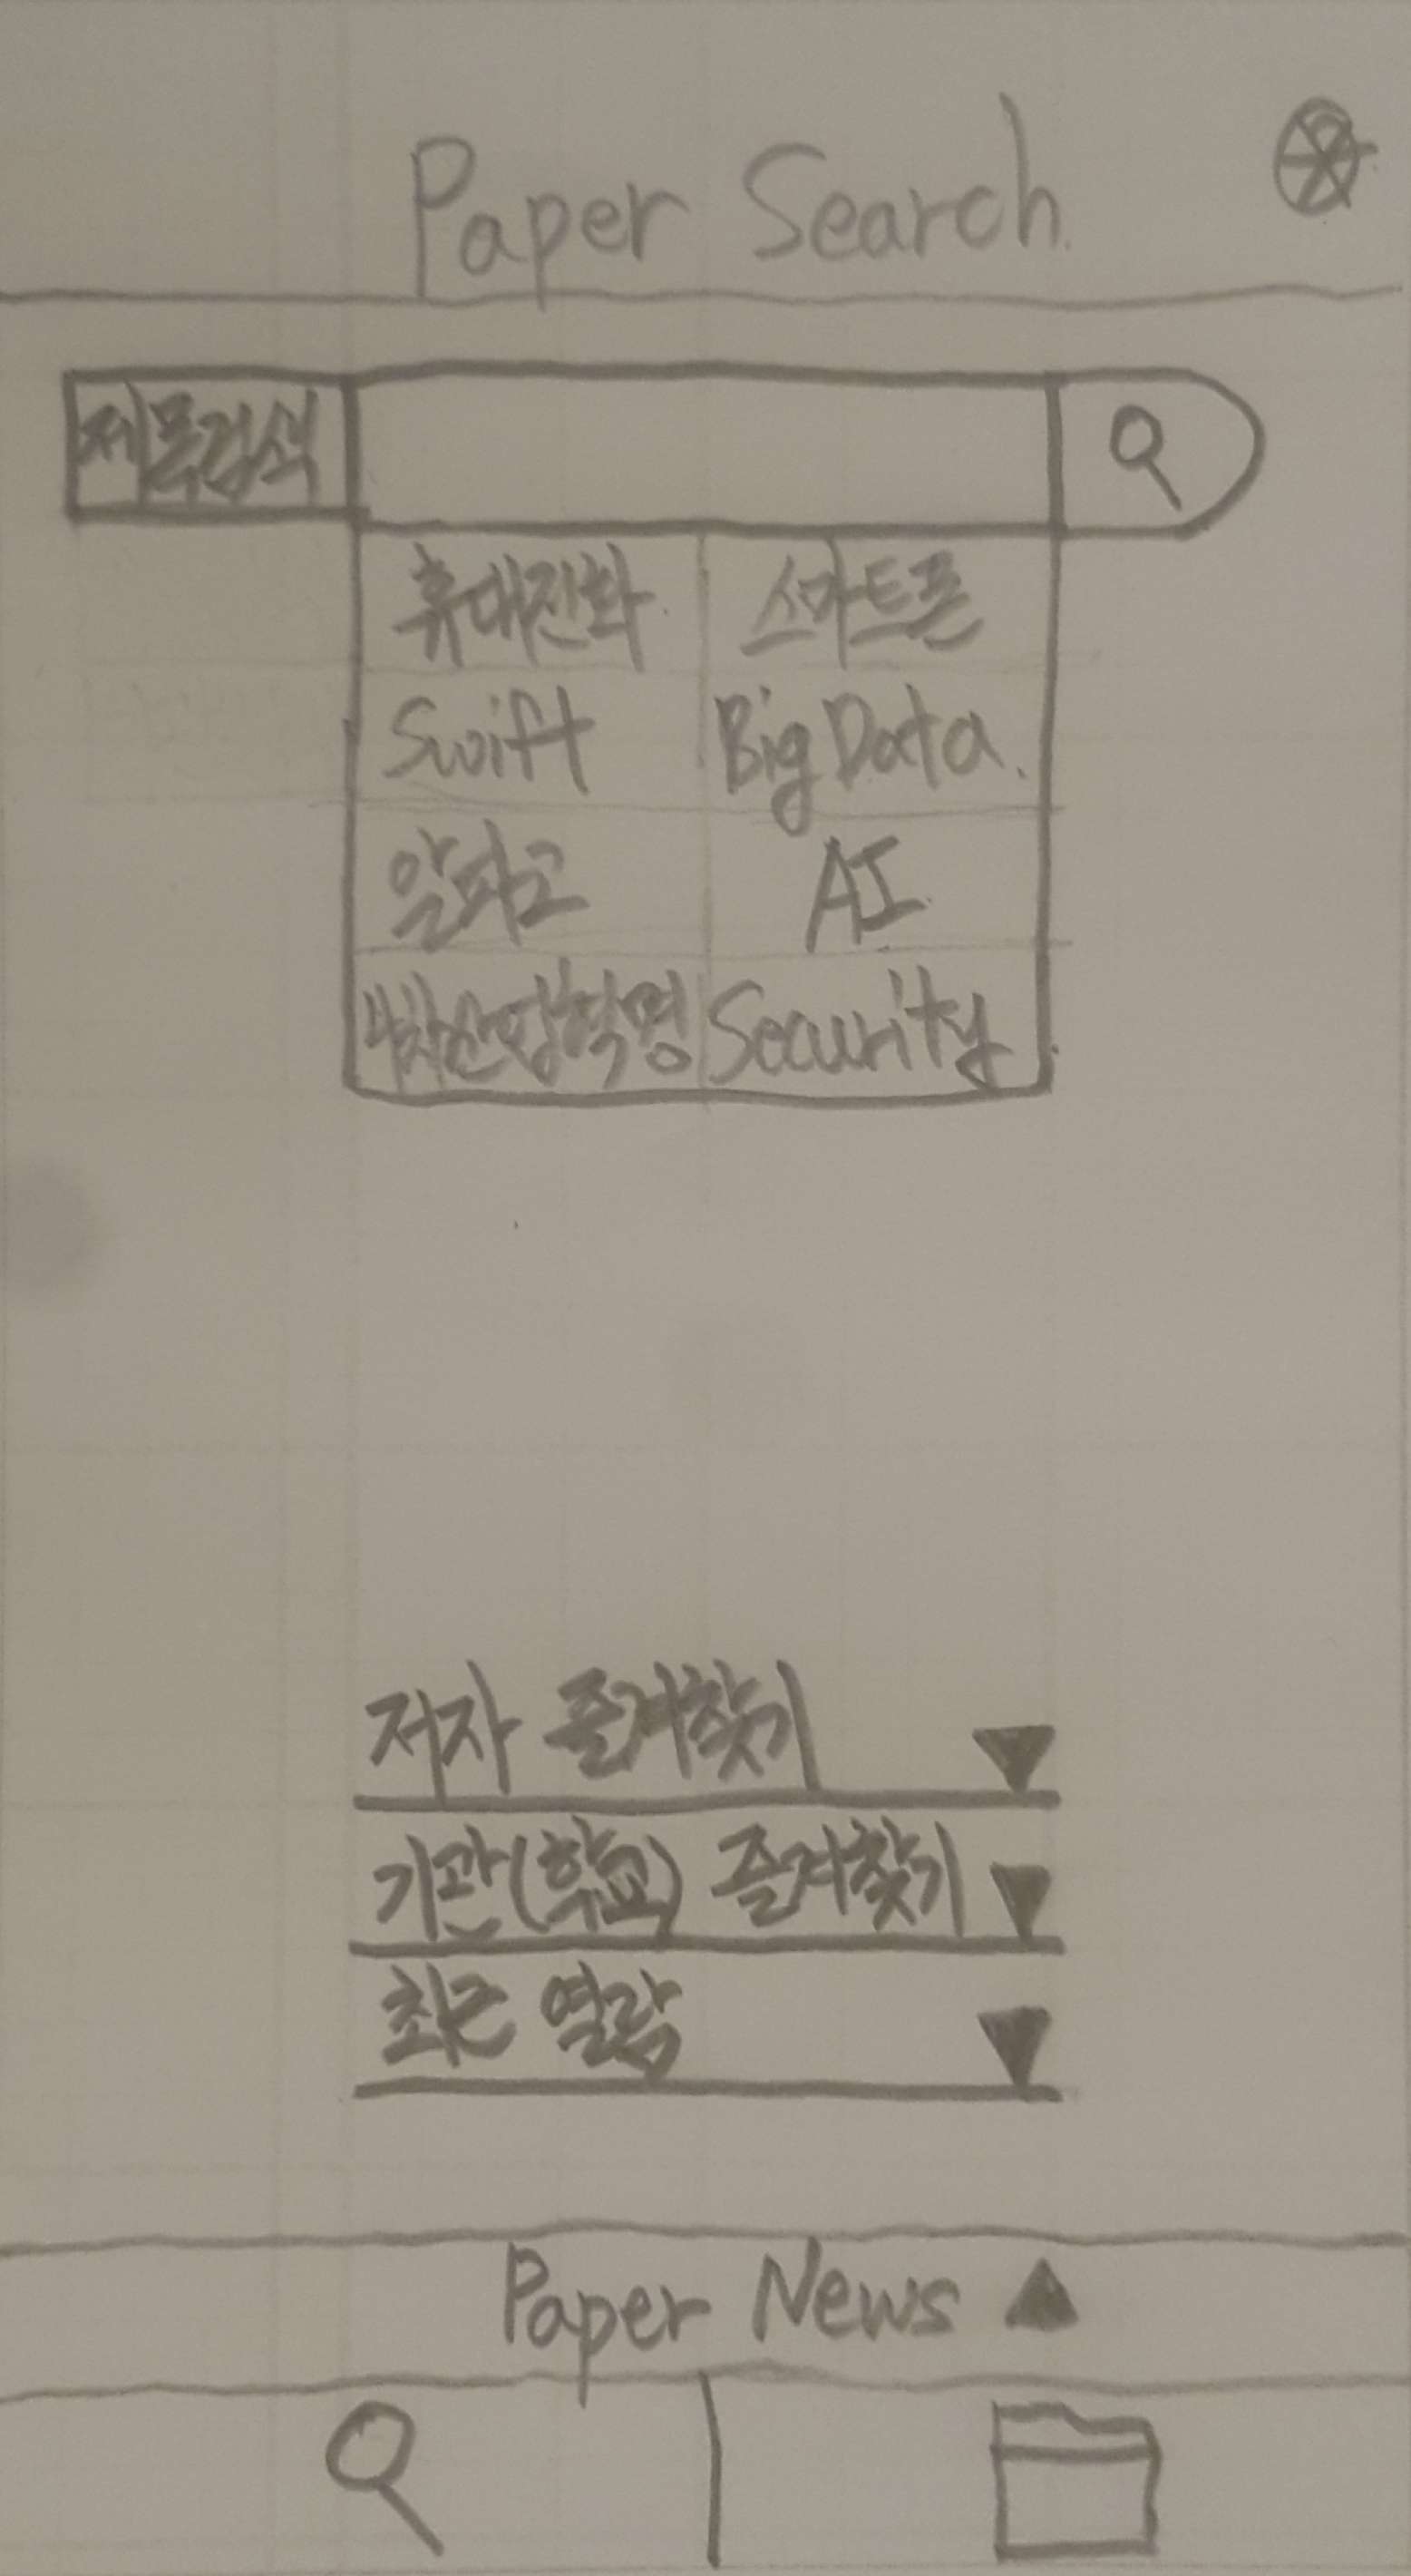 Paper Search
제목검색
휴대전화 스마트폰
Swift Big Data
알파고 AI
4차산업혁명 Security
저자 즐겨찾기
기관(학교) 즐겨찾기
최근 열람
Paper News